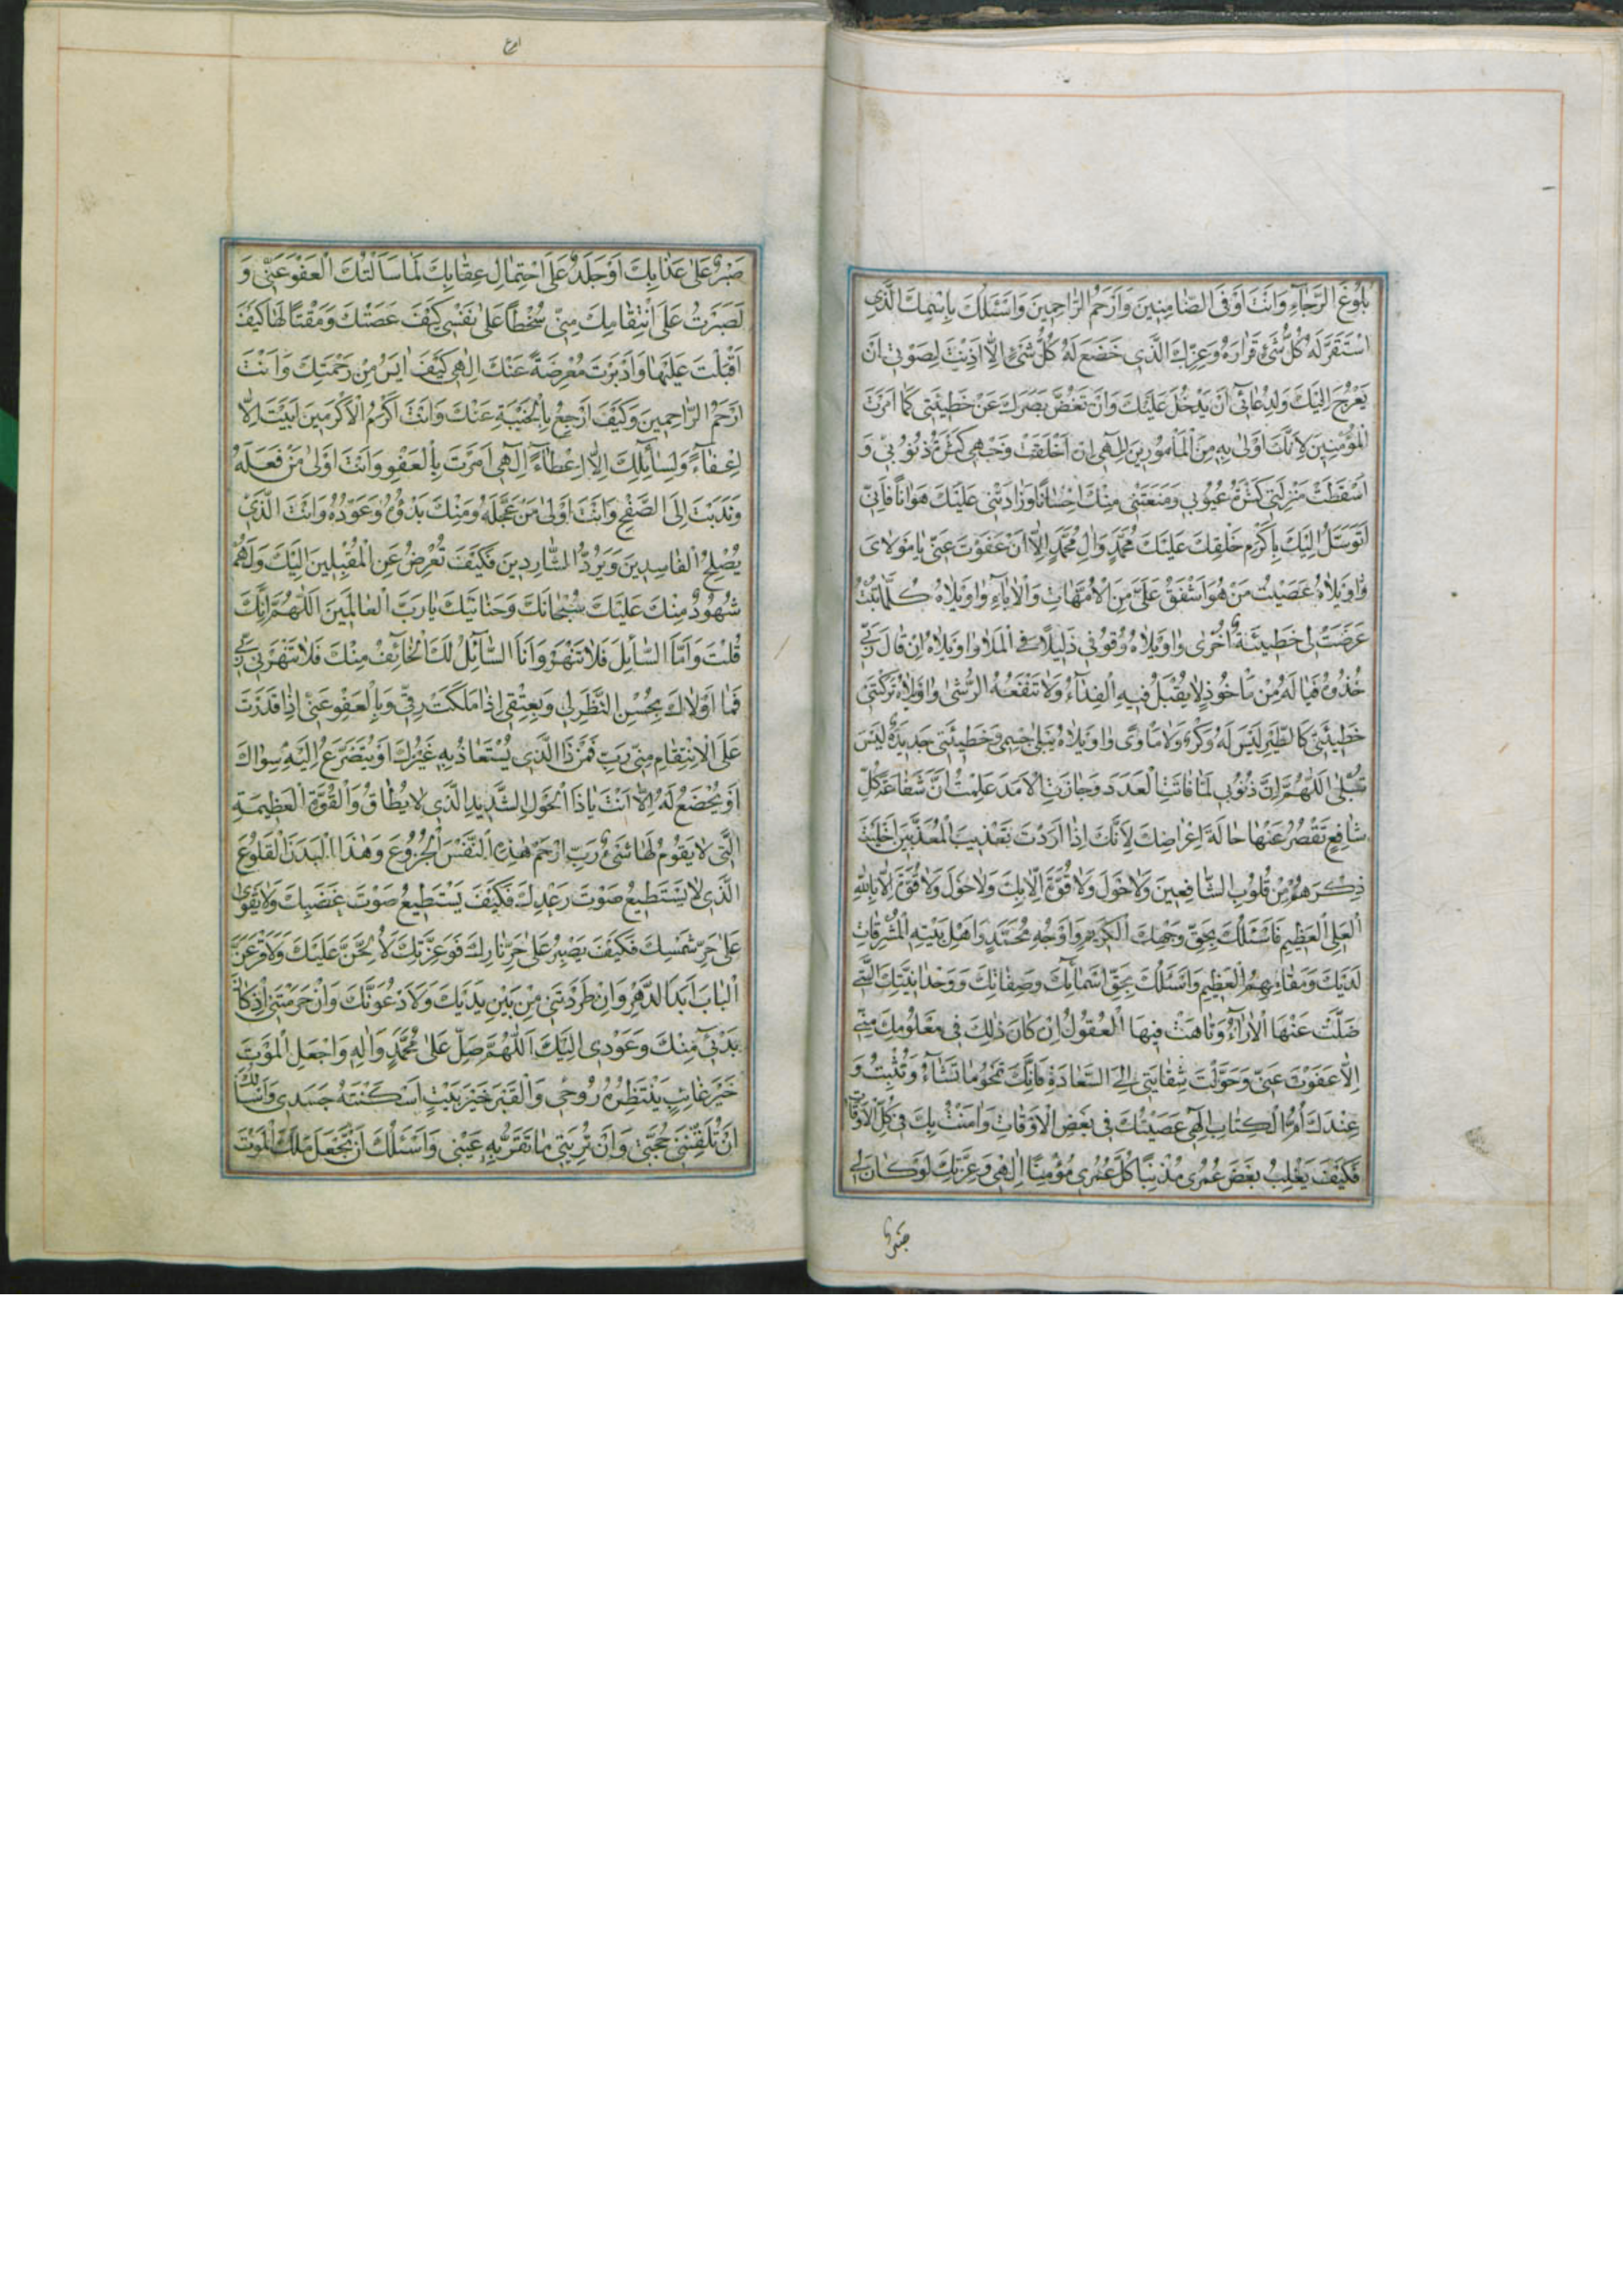 بُلُوغَ الرَّجٰآءِ وَاَنْتَ اَوْفَى الضّٰامِنِينَ وَاَرْحَمُ الرّٰاحِمِينَ وَاَسْئَلُكَ بِاِسْمِكَ الَّذِي
اسْتَقَرَّ لَهُ كُلُّ شَيْءٍ قَرٰارَهُ وَعِزِّكَ الَّذِي خَضَعَ لَهُ كُلُّ شَيْءٍ اِلّٰا اَذِنْتَ لِصَوْتِي اَنْ
يَعْرُجَ اِلَيْكَ وَلِدُعٰائِي اَنْ يَدْخُلَ عَلَيْكَ وَاَنْ تَغُضَّ بَصَرَكَ عَنْ خَطِيئَتِي كَمٰا اَمَرْتَ
الْمُؤْمِنِينَ لِاَنَّكَ اَوْلىٰ بِهِ مِنَ الْمَأْمُورِينَ اِلٰهِي اِنْ اَخْلَقَتْ وَجْهِي كَثْرَةُ ذُنُوبِي وَ
اَسْقَطَتْ مَنْزِلَتِي كَثْرَةُ عُيُوبِي وَمَنَعَتْنِي مِنْكَ اِحْسٰانًا وَزٰادَتْنِي عَلَيْكَ هَوٰانًا فَاِنِّي
اَتَوَسَّلُ اِلَيْكَ بِاَكْرَمِ خَلْقِكَ عَلَيْكَ مُحَمَّدٍ وَاٰلِ مُحَمَّدٍ اِلّٰا اَنْ عَفَوْتَ عَنِّي يٰا مَوْلٰايَ
وٰاوَيْلٰاهُ عَصَيْتُ مَنْ هُوَ اَشْفَقُ عَلَيَّ مِنَ الْاُمَّهٰاتِ وَالْاٰبٰاءِ وٰاوَيْلٰاهُ كُلَّمٰا تُبْتُ
عَرَضَتْ لِي خَطِيئَةٌ اُخْرىٰ وٰاوَيْلٰاهُ وُقُوفِي ذَلِيلًا فِي الْمَلَا وٰاوَيْلٰاهُ اِنْ قٰالَ رَبِّي
خُذُوهُ فَيٰا لَهُ مِنْ مَأْخُوذٍ لٰا يُقْبَلُ فِيهِ الْفِدٰاءُ وَلٰا تَنْفَعُهُ الرُّشىٰ وٰاوَيْلٰاهُ تَرَكَتْنِي
خَطِيئَتِي كَالطَّيْرِ لَيْسَ لَهُ وَكْرٌ وَلٰا مَأْوًى وٰاوَيْلٰاهُ يَبْلىٰ جِسْمِي وَخَطِيئَتِي جَدِيدَةٌ لَيْسَ
تُبْلىٰ اَللّٰهُمَّ اِنَّ ذُنُوبِي لَمّٰا فٰاتَتِ الْعَدَدَ وَجٰازَتِ الْاَمَدَ عَلِمْتُ اَنَّ شَفٰاعَةَ كُلِّ
شٰافِعٍ تَقْصُرُ عَنْهٰا حٰالَةَ اِعْرٰاضِكَ لِاَنَّكَ اِذٰا اَرَدْتَ تَعْذِيبَ الْمُعَذَّبِينَ اَخْلَيْتَ
ذِكْرَهُمْ مِنْ قُلُوبِ الشّٰافِعِينَ وَلٰا حَوْلَ وَلٰا قُوَّةَ اِلّٰا بِكَ وَلٰا حَوْلَ وَلٰا قُوَّةَ اِلّٰا بِاللّٰهِ
الْعَلِيِّ الْعَظِيمِ فَاَسْئَلُكَ بِحَقِّ وَجْهِكَ الْكَرِيمِ وَاَوْجُهِ مُحَمَّدٍ وَاَهْلِ بَيْتِهِ الْمُشْرِقٰاتِ
لَدَيْكَ وَمَقٰامِهِمُ الْعَظِيمِ وَاَسْئَلُكَ بِحَقِّ اَسْمٰائِكَ وَصِفٰاتِكَ وَوَحْدٰانِيَّتِكَ الَّتِي
ضَلَّتْ عَنْهَا الْاٰرٰاءُ وَتٰاهَتْ فِيهَا الْعُقُولُ اِنْ كٰانَ ذٰلِكَ فِي مَعْلُومِكَ مِنِّي
اِلّٰا عَفَوْتَ عَنِّي وَحَوَّلْتَ شِقٰايَتِي اِلَى السَّعٰادَةِ فَاِنَّكَ تَمْحُو مٰا تَشٰآءُ وَتُثْبِتُ وَ
عِنْدَكَ اُمُّ الْكِتٰابِ اِلٰهِي عَصَيْتُكَ فِي بَعْضِ الْاَوْقٰاتِ وَاٰمَنْتُ بِكَ فِي كُلِّ الْاَوْقٰاتِ
فَكَيْفَ يَغْلِبُ بَعْضُ عُمْرِي مُذْنِبًا كُلَّ عُمْرِي مُؤْمِنًا اِلٰهِي وَعِزَّتِكَ لَوْ كٰانَ لِي
صَبْرٌ
صَبْرٌ عَلىٰ عَذٰابِكَ اَوْ جَلَدٌ عَلَى احْتِمٰالِ عِقٰابِكَ لَمٰا سَاَلْتُكَ الْعَفْوَ عَنِّي وَ
لَصَبَرْتُ عَلَى انْتِقٰامِكَ مِنِّي سُخْطًا عَلىٰ نَفْسِي كَيْفَ عَصَتْكَ وَمَقْتًا لَهٰا كَيْفَ
اَقْبَلْتَ عَلَيْهٰا وَاَدْبَرَتْ مُعْرِضَةً عَنْكَ اِلٰهِي كَيْفَ اٰيَسُ مِنْ رَحْمَتِكَ وَاَنْتَ
اَرْحَمُ الرّٰاحِمِينَ وَكَيْفَ اَرْجِعُ بِالْخَيْبَةِ عَنْكَ وَاَنْتَ اَكْرَمُ الْاَكْرَمِينَ اَبَيْتَ اِلّٰا
اِعْفٰاءً وَلِسٰائِلِكَ اِلّٰا اِعْطٰاءً اِلٰهِي اَمَرْتَ بِالْعَفْوِ وَاَنْتَ اَوْلىٰ مَنْ فَعَلَهُ
وَنَدَبْتَ اِلَى الصَّفْحِ وَاَنْتَ اَوْلىٰ مَنْ عَجَّلَهُ وَمِنْكَ بَدْؤُهُ وَعَوْدُهُ وَاَنْتَ الَّذِي
يُصْلِحُ الْفٰاسِدِينَ وَيَرُدُّ الشّٰارِدِينَ فَكَيْفَ تُعْرِضُ عَنِ الْمُقْبِلِينَ اِلَيْكَ وَلَهُمْ
شُهُودٌ مِنْكَ عَلَيْكَ سُبْحٰانَكَ وَحَنٰانَيْكَ يٰا رَبَّ الْعٰالَمِينَ اَللّٰهُمَّ اِنَّكَ
قُلْتَ وَاَمَّا السّٰائِلَ فَلٰا تَنْهَرْ وَاَنَا السّٰائِلُ لَكَ الْخٰائِفُ مِنْكَ فَلٰا تَنْهَرْنِي رَبِّ
فَمٰا اَوْلٰاكَ بِحُسْنِ النَّظَرِ لِي وَبِعِتْقِي اِذٰا مَلَكْتَ رِقِّي وَبِالْعَفْوِ عَنِّي اِذٰا قَدَرْتَ
عَلَى الْاِنْتِقٰامِ مِنِّي رَبِّ فَمَنْ ذَا الَّذِي يُسْتَعٰاذُ بِهِ غَيْرُكَ اَوْ يُتَضَرَّعُ اِلَيْهِ سِوٰاكَ
اَوْ يُخْضَعُ لَهُ اِلّٰا اَنْتَ يٰا ذَا الْحَوْلِ الشَّدِيدِ الَّذِي لٰا يُطٰاقُ وَالْقُوَّةِ الْعَظِيمَةِ
الَّتِي لٰا يَقُومُ لَهٰا شَيْءٌ رَبِّ ارْحَمْ هٰذِهِ النَّفْسَ الْجَزُوعَ وَهٰذَا الْبَدَنَ الْقَلُوعَ
الَّذِي لٰا يَسْتَطِيعُ صَوْتَ رَعْدِكَ فَكَيْفَ يَسْتَطِيعُ صَوْتَ غَضَبِكَ وَلٰا يَقْوىٰ
عَلىٰ حَرِّ شَمْسِكَ فَكَيْفَ يَصْبِرُ عَلىٰ حَرِّ نٰارِكَ فَوَعِزَّتِكَ لَاُلِحَّنَّ عَلَيْكَ وَلَاَقْرَعَنَّ
الْبٰابَ اَبَدَ الدَّهْرِ وَاِنْ طَرَدْتَنِي مِنْ بَيْنِ يَدَيْكَ وَلَاَدْعُوَنَّكَ وَاِنْ حَرَمْتَنِي اِذْ كٰانَ
بَدْئِي مِنْكَ وَعَوْدِي اِلَيْكَ اَللّٰهُمَّ صَلِّ عَلىٰ مُحَمَّدٍ وَاٰلِهِ وَاجْعَلِ الْمَوْتَ
خَيْرَ غٰائِبٍ يَنْتَظِرُهُ رُوحِي وَالْقَبْرَ خَيْرَ بَيْتٍ اَسْكَنْتَهُ جَسَدِي وَاَسْأَلُكَ
اَنْ تُلَقِّنَنِي حُجَّتِي وَاَنْ تُرِيَنِي مٰا تَقَرُّ بِهِ عَيْنِي وَاَسْئَلُكَ اَنْ تَجْعَلَ مَلَكَ الْمَوْتِ